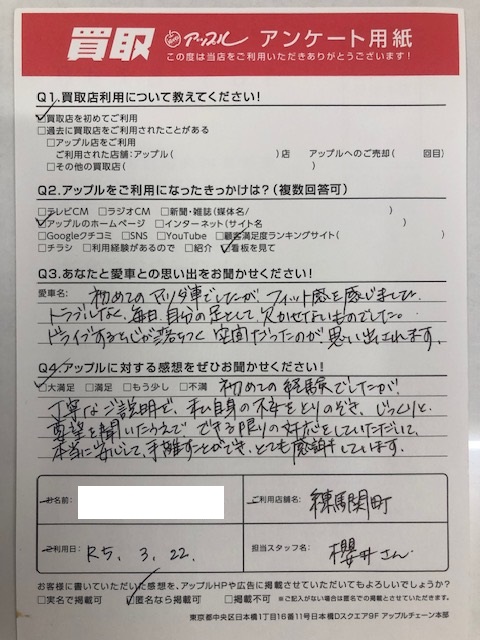 買取 アップル アンケート用紙
この度は当店をご利用いただきありがとうございます!
Q1.買取店利用について教えてください!
☑買取店を初めてご利用
□過去に買取店をご利用されたことがある
□アップル店をご利用
ご利用された店舗:アップル( )店 アップルへのご売却( 回目)
□その他の買取店( )
Q2.アップルをご利用になったきっかけは?(複数回答可)
□テレビCM □ラジオCM □新聞・雑誌(媒体名/ )
☑アップルのホームページ □インターネット(サイト名 )
□Googleクチコミ □SNS □YouTube □顧客満足度ランキングサイト( )
□チラシ □利用経験があるので □紹介 ☑看板を見て
Q3.あなたと愛車との思い出をお聞かせください!
愛車名: 初めてのマツダ車でしたが、フィット感を感じました。
トラブルなく、毎日、自分の足として欠かせないものでした。
ドライブすると心が落ちつく空間だったのが思い出されます。
Q4.アップルに対する感想をぜひお聞かせください!
☑大満足 □満足 □もう少し □不満 初めての経験でしたが、
丁寧なご説明で、私自身の不安をとりのぞき、じっくりと
要望を聞いたうえで、できる限りの対応をしていただいて、
本当に安心して、手離すことができ、とても感謝しています。
お名前: ご利用店舗名: 練馬関町
ご利用日: R5. 3. 22. 担当スタッフ名: 櫻井さん
お客様に書いていただいた感想を、アップルHPや広告に掲載させていただいてもよろしいでしょうか?
□実名で掲載可 ☑匿名なら掲載可 □掲載不可 ※ご記入がない場合は匿名での掲載とさせていただきます。
東京都中央区日本橋1丁目16番11号日本橋Dスクエア9F アップルチェーン本部